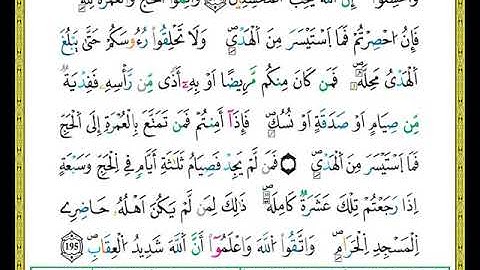 وَأَحْسِنُوٓا۟ إِنَّ اللَّهَ يُحِبُّ الْمُحْسِنِينَ وَأَتِمُّوا الْحَجَّ وَالْعُمْرَةَ لِلَّهِ
فَإِنُ احْصِرْتُمْ فَمَا اَسْتَيْسَرَ مِنَ اَلْهَدْيِ وَلَا تَحْلِقُواْ رُءُوسَكُمْ حَتَّىٰ يَبْلُغَ
اَلْهَدْىُ مَحِلَّهُ فَمَن كَانَ مِنكُم مَّرِيضًا اَوْ بِهِۦٓ أَذًى مِّن رَّأْسِهِۦ فَفِدْيَةٌ
مِّن صِيَامٍ اَوْ صَدَقَةٍ اَوْ نُسُكٍ فَإِذَآ أَمِنتُمْ فَمَن تَمَتَّعَ بِالْعُمْرَةِ إِلَى اَلْحَجِّ
فَمَا اَسْتَيْسَرَ مِنَ اَلْهَدْيِ فَمَن لَّمْ يَجِدْ فَصِيَامُ ثَلَٰثَةِ أَيَّامٍ فِي اِلْحَجِّ وَسَبْعَةٍ
اِذَا رَجَعْتُمْ تِلْكَ عَشَرَةٌ كَامِلَةٌ ذَٰلِكَ لِمَن لَّمْ يَكُنَ اَهْلُهُۥ حَاضِرِے
اِلْمَسْجِدِ اِلْحَرَامِ وَاتَّقُواْ اَللَّهَ وَاعْلَمُوٓاْ أَنَّ اَللَّهَ شَدِيدُ اُلْعِقَابِ 195